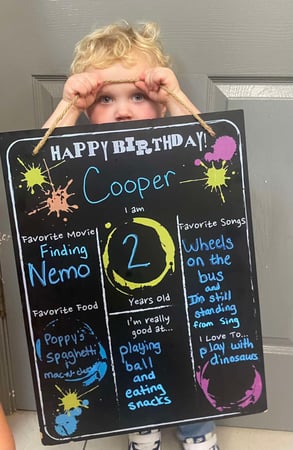 HAPPY BIRTHDAY!
Cooper
I am
2
Years old
Favorite Movie
Finding
Nemo
Favorite Food
Poppy's
Spaghetti
mac n cheese
I'm really
good at...
playing
ball
and
eating
snacks
Favorite Songs
Wheels
on the
bus
and
I'm still
standing
from Sing
I Love To...
play with
dinosaurs